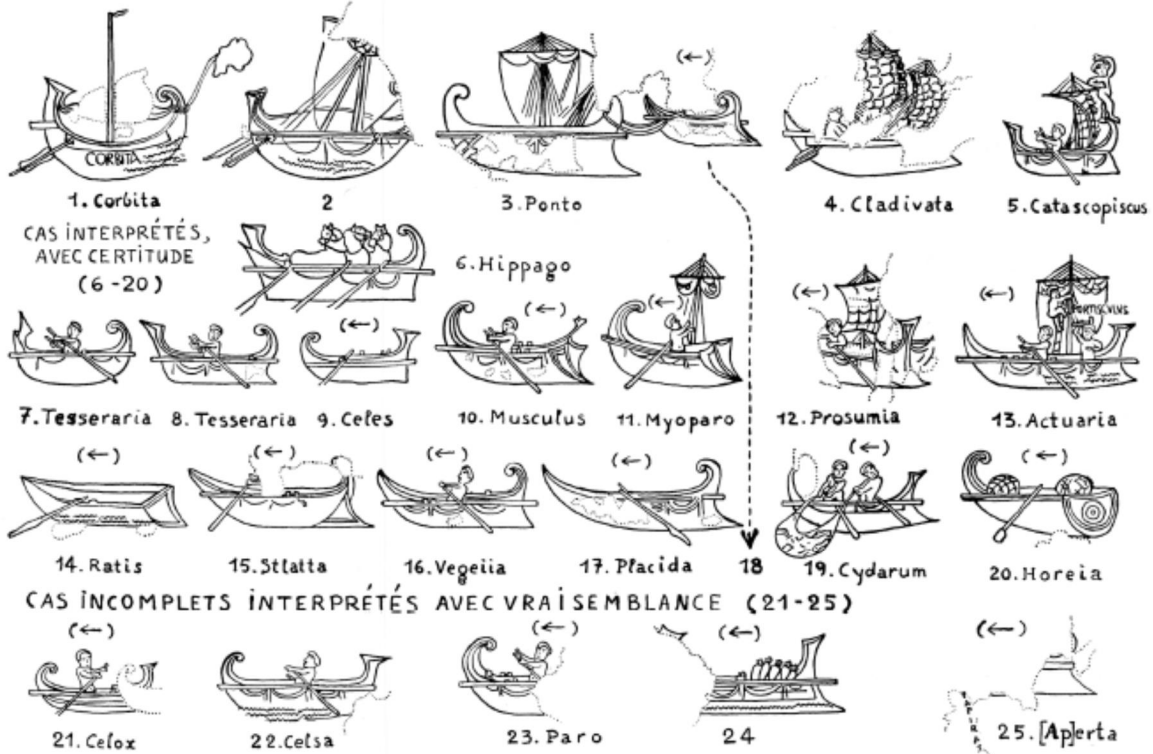 CORBITA
(←)
1. Corbita
2
3. Ponto
4. Cladivata
5. Catascopiscus
CAS INTERPRÉTÉS,
AVEC CERTITUDE
(6-20)
6. Hippago
(←)
(←)
(←)
(←)
(←)
PORTISCVLVS
7. Tesseraria
8. Tesseraria
9. Celes
10. Musculus
11. Myoparo
12. Prosumia
13. Actuaria
(←)
(←)
(←)
(←)
(←)
(←)
14. Ratis
15. Stlatta
16. Vegeiia
17. Placida
18
19. Cydarum
20. Horeia
CAS INCOMPLETS INTERPRÉTÉS AVEC VRAISEMBLANCE (21-25)
(←)
(←)
(←)
(←)
21. Celox
22. Celsa
23. Paro
24
25. [Ap]erta